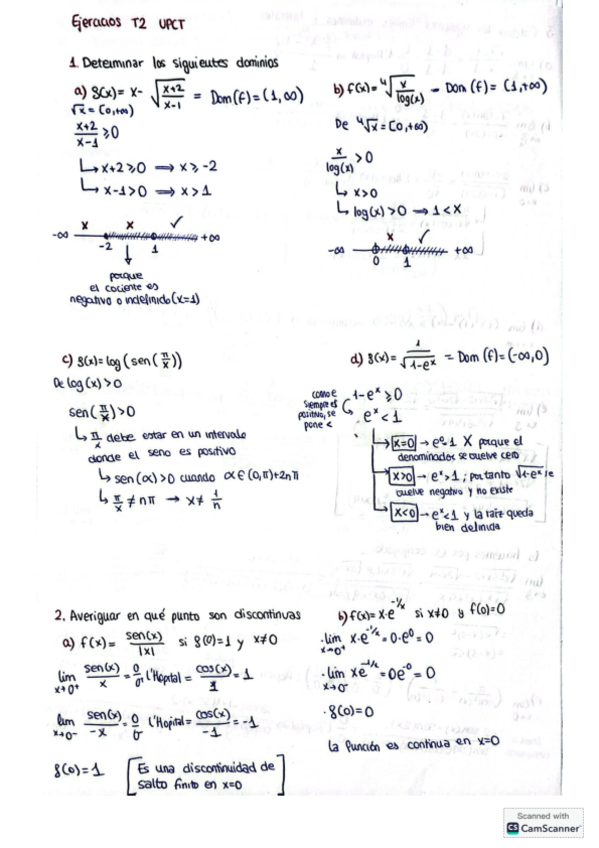 Ejercicios T2 UPCT
1. Determinar los siguientes dominios
a) f(x) = x - √((x+2)/(x-1)) = Dom(f) = (1, ∞)
√x = [0, +∞)
(x+2)/(x-1) ≥ 0
↳ x+2 ≥ 0 ⟹ x ≥ -2
↳ x-1 > 0 ⟹ x > 1
x x ✓
-∞ -2 1 +∞
porque
el cociente es
negativo o indefinido (x=1)
b) f(x) = ⁴√(x/log(x)) - Dom (f) = (1, +∞)
De ⁴√x = [0, +∞)
x/log(x) > 0
↳ x > 0
↳ log(x) > 0 ⟹ 1 < x
x ✓
-∞ 0 1 +∞
c) f(x) = log(sen(π/x))
De log(x) > 0
sen(π/x) > 0
↳ π/x debe estar en un intervalo
donde el seno es positivo
↳ sen(α) > 0 cuando α ∈ (0, π) + 2nπ
↳ π/x ≠ nπ → x ≠ 1/n
d) f(x) = 1/√(1-eˣ) = Dom (f) = (-∞, 0)
como e
siempre es
positivo, se
pone <
1-eˣ ≥ 0
eˣ < 1
↳ x=0 → e⁰=1 X porque el
denominador se vuelve cero
↳ x>0 → eˣ > 1 ; por tanto √(1-eˣ) se
vuelve negativo y no existe
↳ x<0 → eˣ < 1 y la raíz queda
bien definida
2. Averiguar en qué punto son discontinuas
a) f(x) = sen(x)/|x| si f(0) = 1 y x ≠ 0
lim x→0⁺ sen(x)/x = 0/0 l'Hopital = cos(x)/1 = 1
lim x→0⁻ sen(x)/-x = 0/0 l'Hopital = cos(x)/-1 = -1
f(0) = 1 [Es una discontinuidad de
salto finito en x=0]
b) f(x) = x·e^(-1/x) si x ≠ 0 y f(0) = 0
· lim x→0⁺ x·e^(-1/x) = 0·e⁰ = 0
· lim x→0⁻ xe^(-1/x) = 0e⁻⁰ = 0
· f(0) = 0
La función es continua en x=0
Scanned with
CS CamScanner